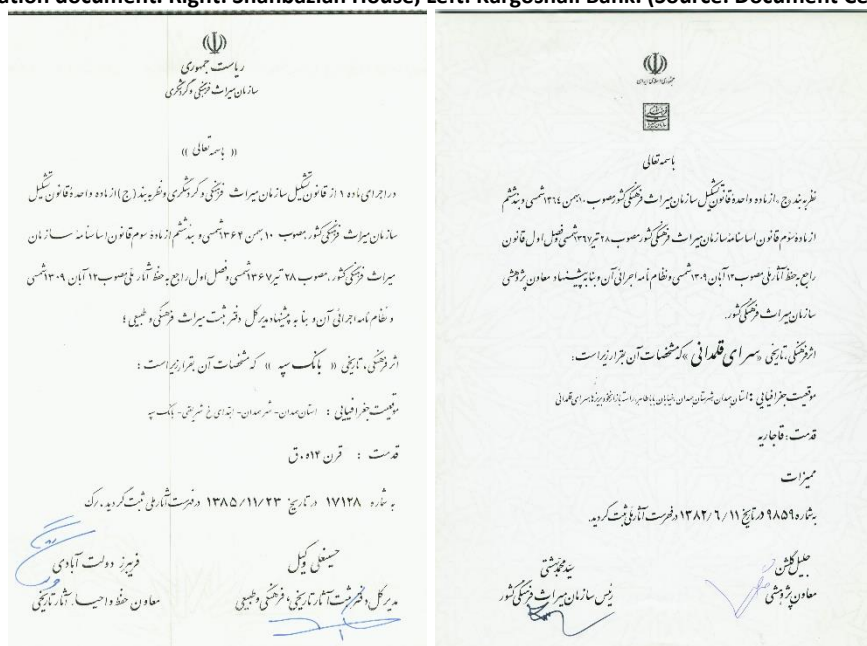 ation document. Right: Shahbazian House, Left: Kargoshaii Bank. (Source: Document Ce
ریاست جمهوری
سازمان میراث فرهنگی و گردشگری
(( باسمه تعالی ))
در اجرای ماده ۱ از قانون تشکیل سازمان میراث فرهنگی و گردشگری و نظر به بند ( ج ) از ماده واحده قانون تشکیل
سازمان میراث فرهنگی کشور مصوب ۱۰ بهمن ۱۳۶۴ شمسی و بند ششم از ماده سوم قانون اساسنامه ســازمان
میراث فرهنگی کشور، مصوب ۲۸ تیر ۱۳۶۷ شمسی و فصل اول راجع به حفظ آثار ملی مصوب ۱۲ آبان ۱۳۰۹ شمسی
و نظام نامه اجرائی آن و بنا به پیشنهاد مدیر کل دفتر ثبت میراث فرهنگی و طبیعی ؛
اثر فرهنگی، تاریخی (( بانک سپه )) که مشخصات آن بقرار زیر است :
موقعیت جغرافیایی : استان همدان- شهر همدان- ابتدای خ شریعتی- بانک سپه
قدمت : قرن ۱۴ه.ق
به شماره ۱۷۱۲۸ در تاریخ ۱۳۸۵/۱۱/۲۳ در فهرست آثار ملی ثبت گردید.
حسینعلی وکیل
مدیر کل دفتر ثبت آثار تاریخی، فرهنگی و طبیعی
فریبرز دولت آبادی
معاون حفظ و احیاء آثار تاریخی
جمهوری اسلامی ایران
باسمه تعالی
نظر به بند «ج» از ماده واحدهٔ قانون تشکیل سازمان میراث فرهنگی کشور مصوب ۱۰ بهمن ۱۳۶۴ شمسی و بند ششم
از مادهٔ سوم قانون اساسنامهٔ سازمان میراث فرهنگی کشور مصوب ۲۸ تیر ۱۳۶۷ شمسی و فصل اول قانون
راجع به حفظ آثار ملی مصوب ۱۲ آبان ۱۳۰۹ شمسی و نظام نامه اجرائی آن و بنا به پیشنهاد معاون پژوهشی
سازمان میراث فرهنگی کشور.
اثر فرهنگی، تاریخی «سرای قلمدانی» که مشخصات آن بقرار زیر است:
موقعیت جغرافیایی : استان همدان شهرستان همدان، خیابان باباطاهر، راسته بازار نخود بریزها، سرای قلمدانی
قدمت : قاجاریه
ممیزات
به شماره ۹۸۵۹ در تاریخ ۱۳۸۲/۶/۱۱ در فهرست آثار ملی ثبت گردید.
جلیل گلشن
معاون پژوهشی
سید محمد بهشتی
رئیس سازمان میراث فرهنگی کشور